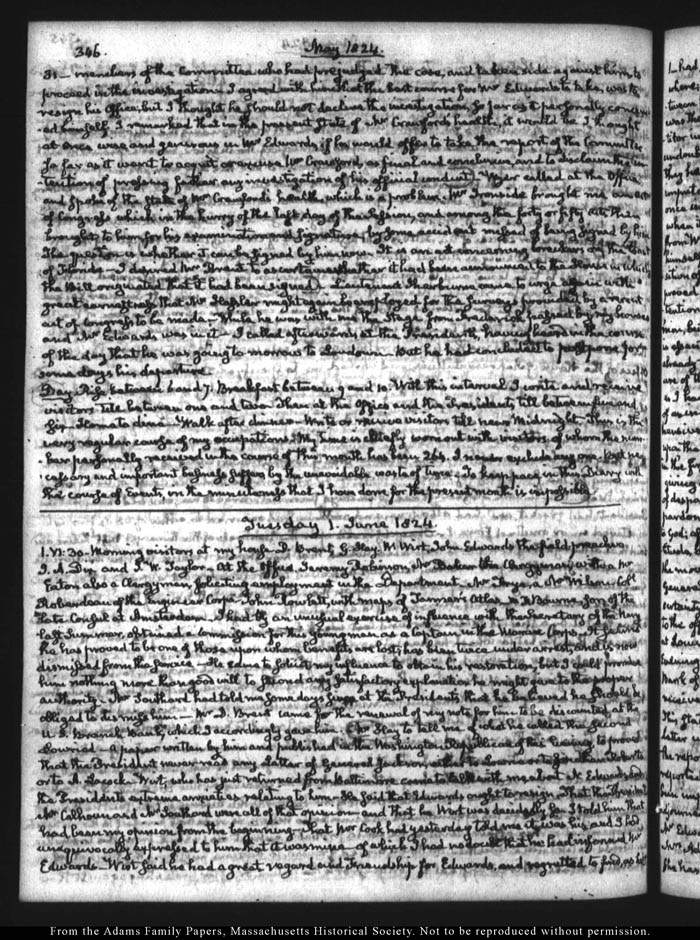 346.
May 1824.
31 — members of the Committee who had prejudged the case, and taken side against him, to
proceed in the investigation. I agreed with him that the best course for Mr Edwards to take, was to
resign his Office, but I thought he should not decline the investigation, so far as it personally concern-
-ed himself. I remarked that in the present State of Mr Crawford's health, it would be I thought
at once wise and generous in Mr Edwards, if he would offer to take the report of the Committee
so far as it went to acquit or excuse Mr Crawford, as final and conclusive, and to disclaim the in-
-tention of pressing further any investigation of his official conduct. Wyer called at the Office
and spoke of the state of Mr Crawford's health, which is a problem. Mr Ironside brought me an act
of Congress which in the hurry of the last day of the Session, and among the forty or fifty
brought to him for his examination and signature, by some accident missed of being signed by him
The question is whether it can be signed by him now. It is an act concerning
of Florida — I desired Mr Brent to ascertain whether it had been announced to the House in which
the Bill originated that it had been signed. Lieutenant Sherburne came to urge again with
great earnestness that Mr Hassler might again be employed for the Surveys provided by a recent
act of Congress to be made. While he was with me the Stage from Frederick passed by my house
and Mr Edwards was in it. I called afterwards at the President's, having heard in the course
of the day that he was going to-morrow to Loudoun. But he had concluded to postpone for
some days his departure.
Day. Rise between 6 and 7. Breakfast between 9 and 10. With this interval I write and receive
visitors till between one and two. Then at the Office and the President's till between five and
six. Home to dine. Walk after dinner. Write or receive visitors till near Midnight. This is the
very regular course of my occupations. My time is chiefly worn out with visitors of whom the num-
-ber personally received in the course of this month has been 264. I never exclude any one. But ne-
-cessary and important business suffers by the unavoidable waste of time. To keep pace in this Diary with
the course of Events, in the minuteness that I have done for the present month is impossible.
Tuesday 1. June 1824.
1. VI: 30. Morning visitors at my house D. Brent, G. Hay. W. Wirt, John Edwards the field preacher
I. A. Dix and J. W. Taylor. At the Office Jeremy Robinson, Mr Baker this Clergyman, with a Mr
Eaton also a Clergyman, soliciting employment in the Department. Mr Wilson, Col
Roberdeau of the Engineer Corps, John Howlett, with maps of Tanner's Atlas. Mr Bourne, Son of the
late Consul at Amsterdam. I had by an unusual exercise of influence with the Secretary of the Navy
last Summer, obtained a Commission for this young man as a Captain in the Marine Corps. It seems
he has proved to be one of those upon whom benefits are lost; has been twice under arrest, and is now
dismissed from the Service. He came to solicit my influence to obtain his restoration, but I could promise
him nothing more than good will to second any satisfactory explanation he might give to the proper
authority. Mr Southard had told me some days since at the President's that he believed he should be
obliged to dismiss him. Mr D. Brent came for the renewal of my note for him to be discounted at the
U. S. Branch Bank, which I accordingly gave him. Mr Hay to tell me of what he called the second
— A paper written by him and published in the Washington Republican of this Evening, to prove
that the President never read any letter of General Jackson's either to or to
or to A. Lacock. Wirt, who has just returned from Baltimore came to talk with me about N. Edwards and
the President's extreme anxieties relating to him. He said that Edwards ought to resign. That the President
Mr Calhoun and Mr Southard were all of that opinion and that he Wirt was decidedly so. I told him that
had been my opinion from the beginning. That Mr Cook had yesterday told me it was his and I had
unequivocally expressed to him that it was mine, of which I had no doubt that he had informed Mr
Edwards. Wirt said he had a great regard and Friendship for Edwards, and regretted to find,
From the Adams Family Papers, Massachusetts Historical Society. Not to be reproduced without permission.